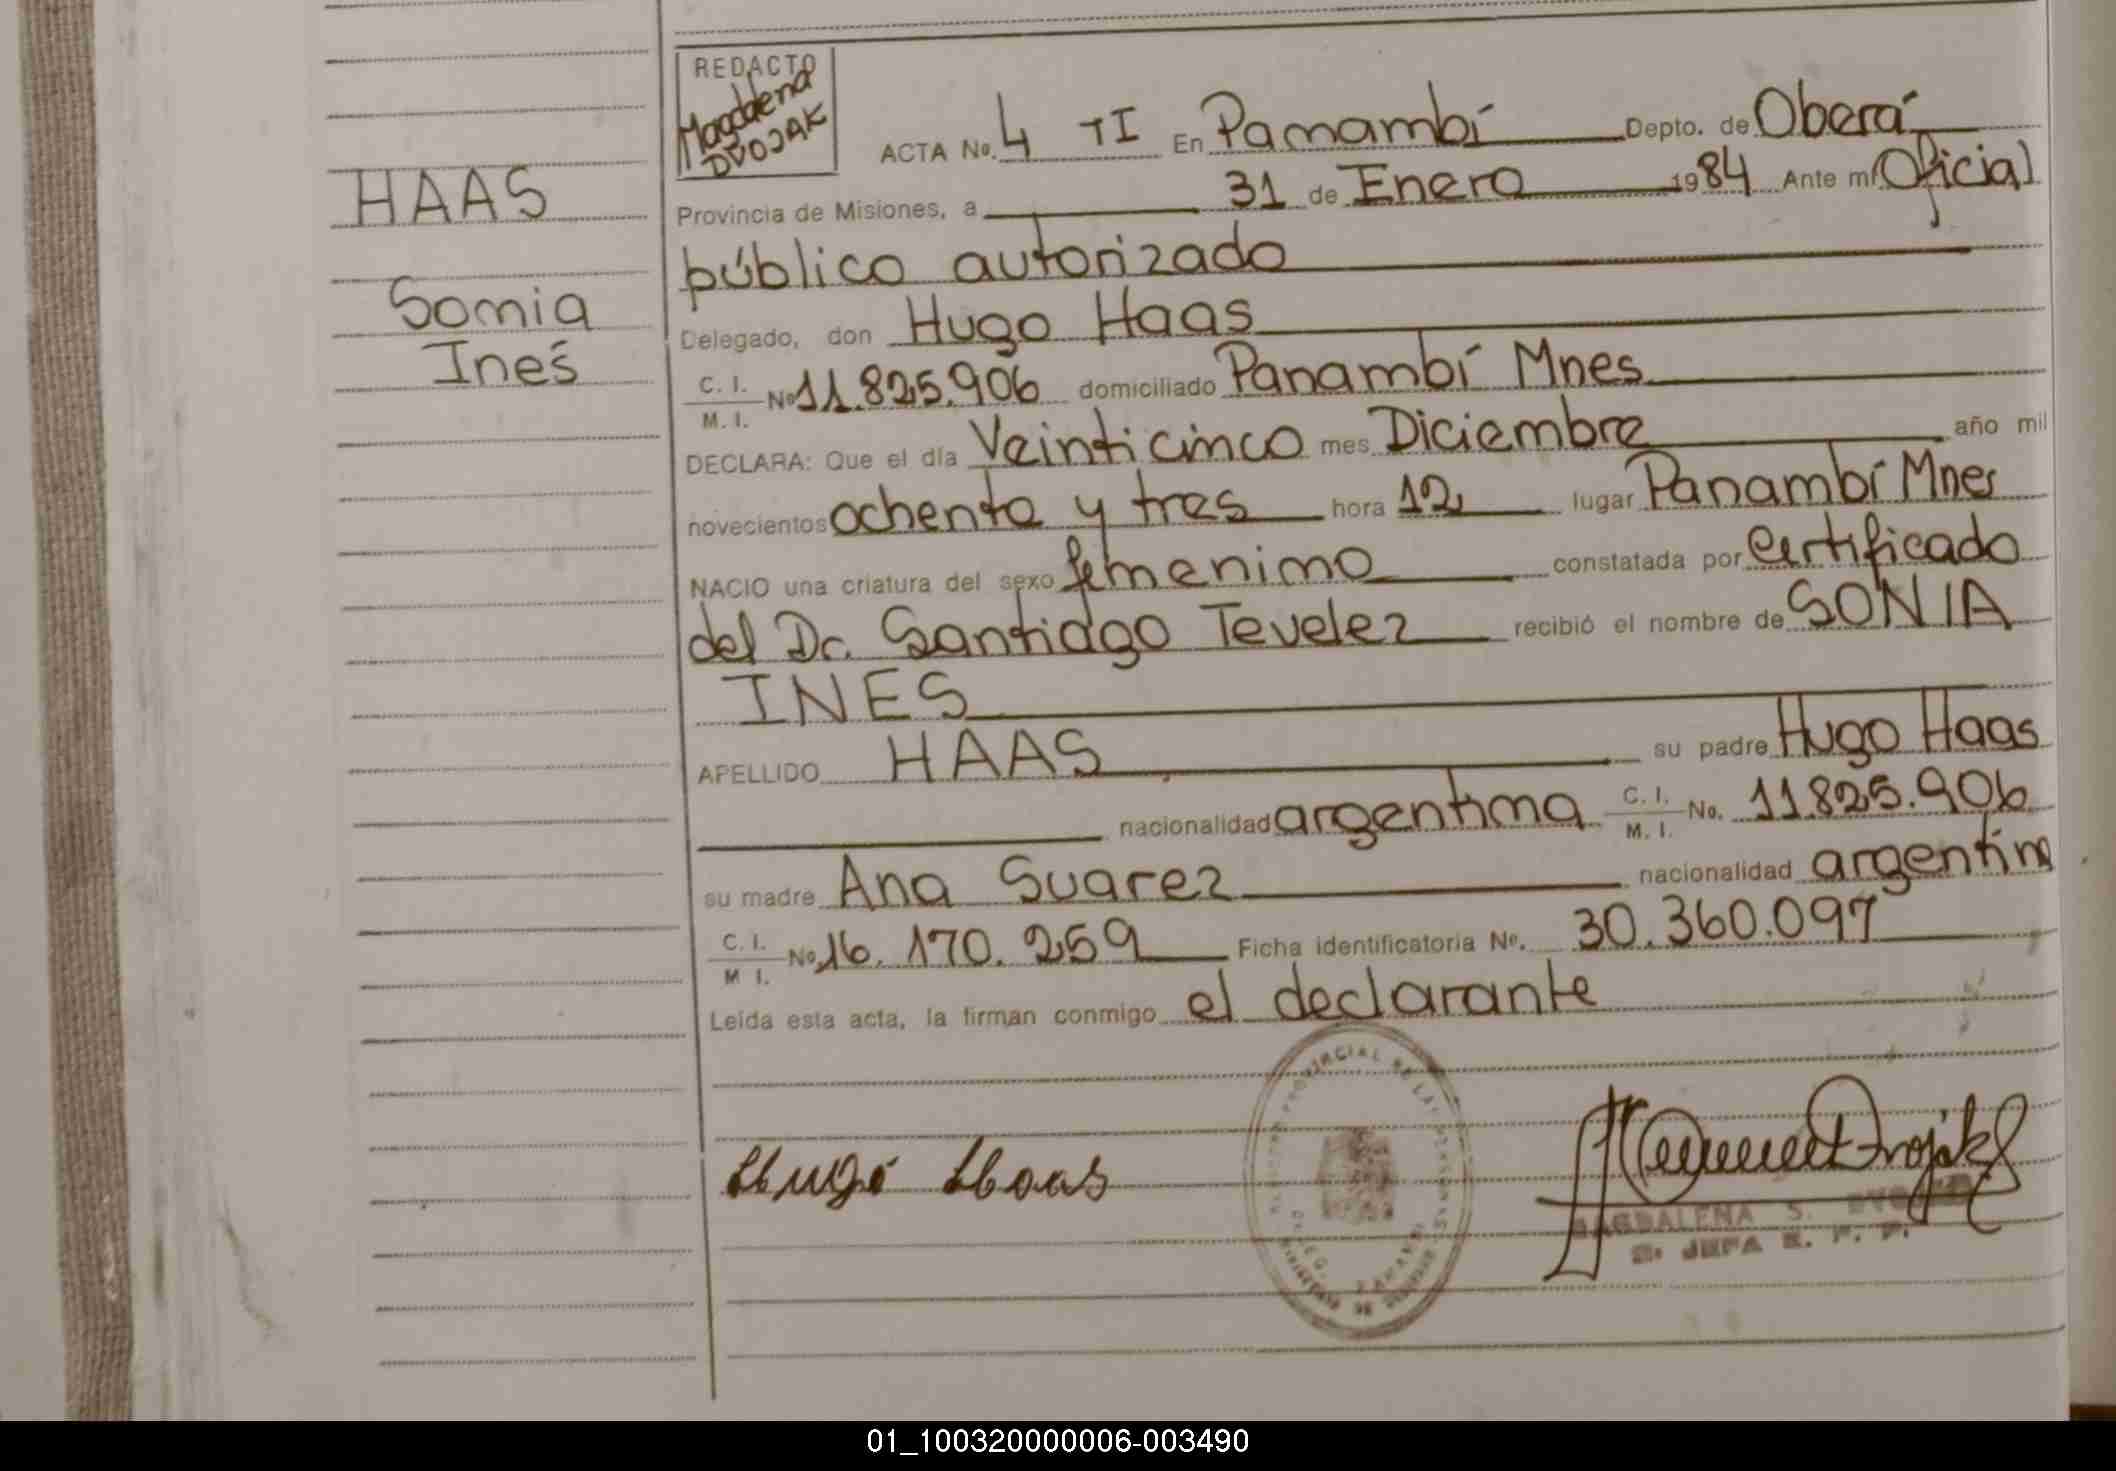 REDACTO
Magdalena
DVOJAK
ACTA No. 4 TI En Panambí Depto. de Oberá
Provincia de Misiones, a 31 de Enero 1984 Ante mí Oficial
público autorizado
HAAS
Sonia
Inés
Delegado, don Hugo Haas
C. I.
M. I. No 11.825.906 domiciliado Panambí Mnes
DECLARA: Que el día Veinticinco mes Diciembre año mil
novecientos ochenta y tres hora 12 lugar Panambí Mnes
NACIO una criatura del sexo femenino constatada por certificado
del Dr. Santiago Tevelez recibió el nombre de SONIA
INES
APELLIDO HAAS su padre Hugo Haas
nacionalidad argentina C. I.
M. I. No. 11.825.906
su madre Ana Suarez nacionalidad argentina
C. I.
M I. No 16.170.259 Ficha identificatoria No. 30.360.097
Leída esta acta, la firman conmigo el declarante
Hugo Haas
MAGDALENA S. DVOJAK
JEFA R. P. P.
01_100320000006-003490